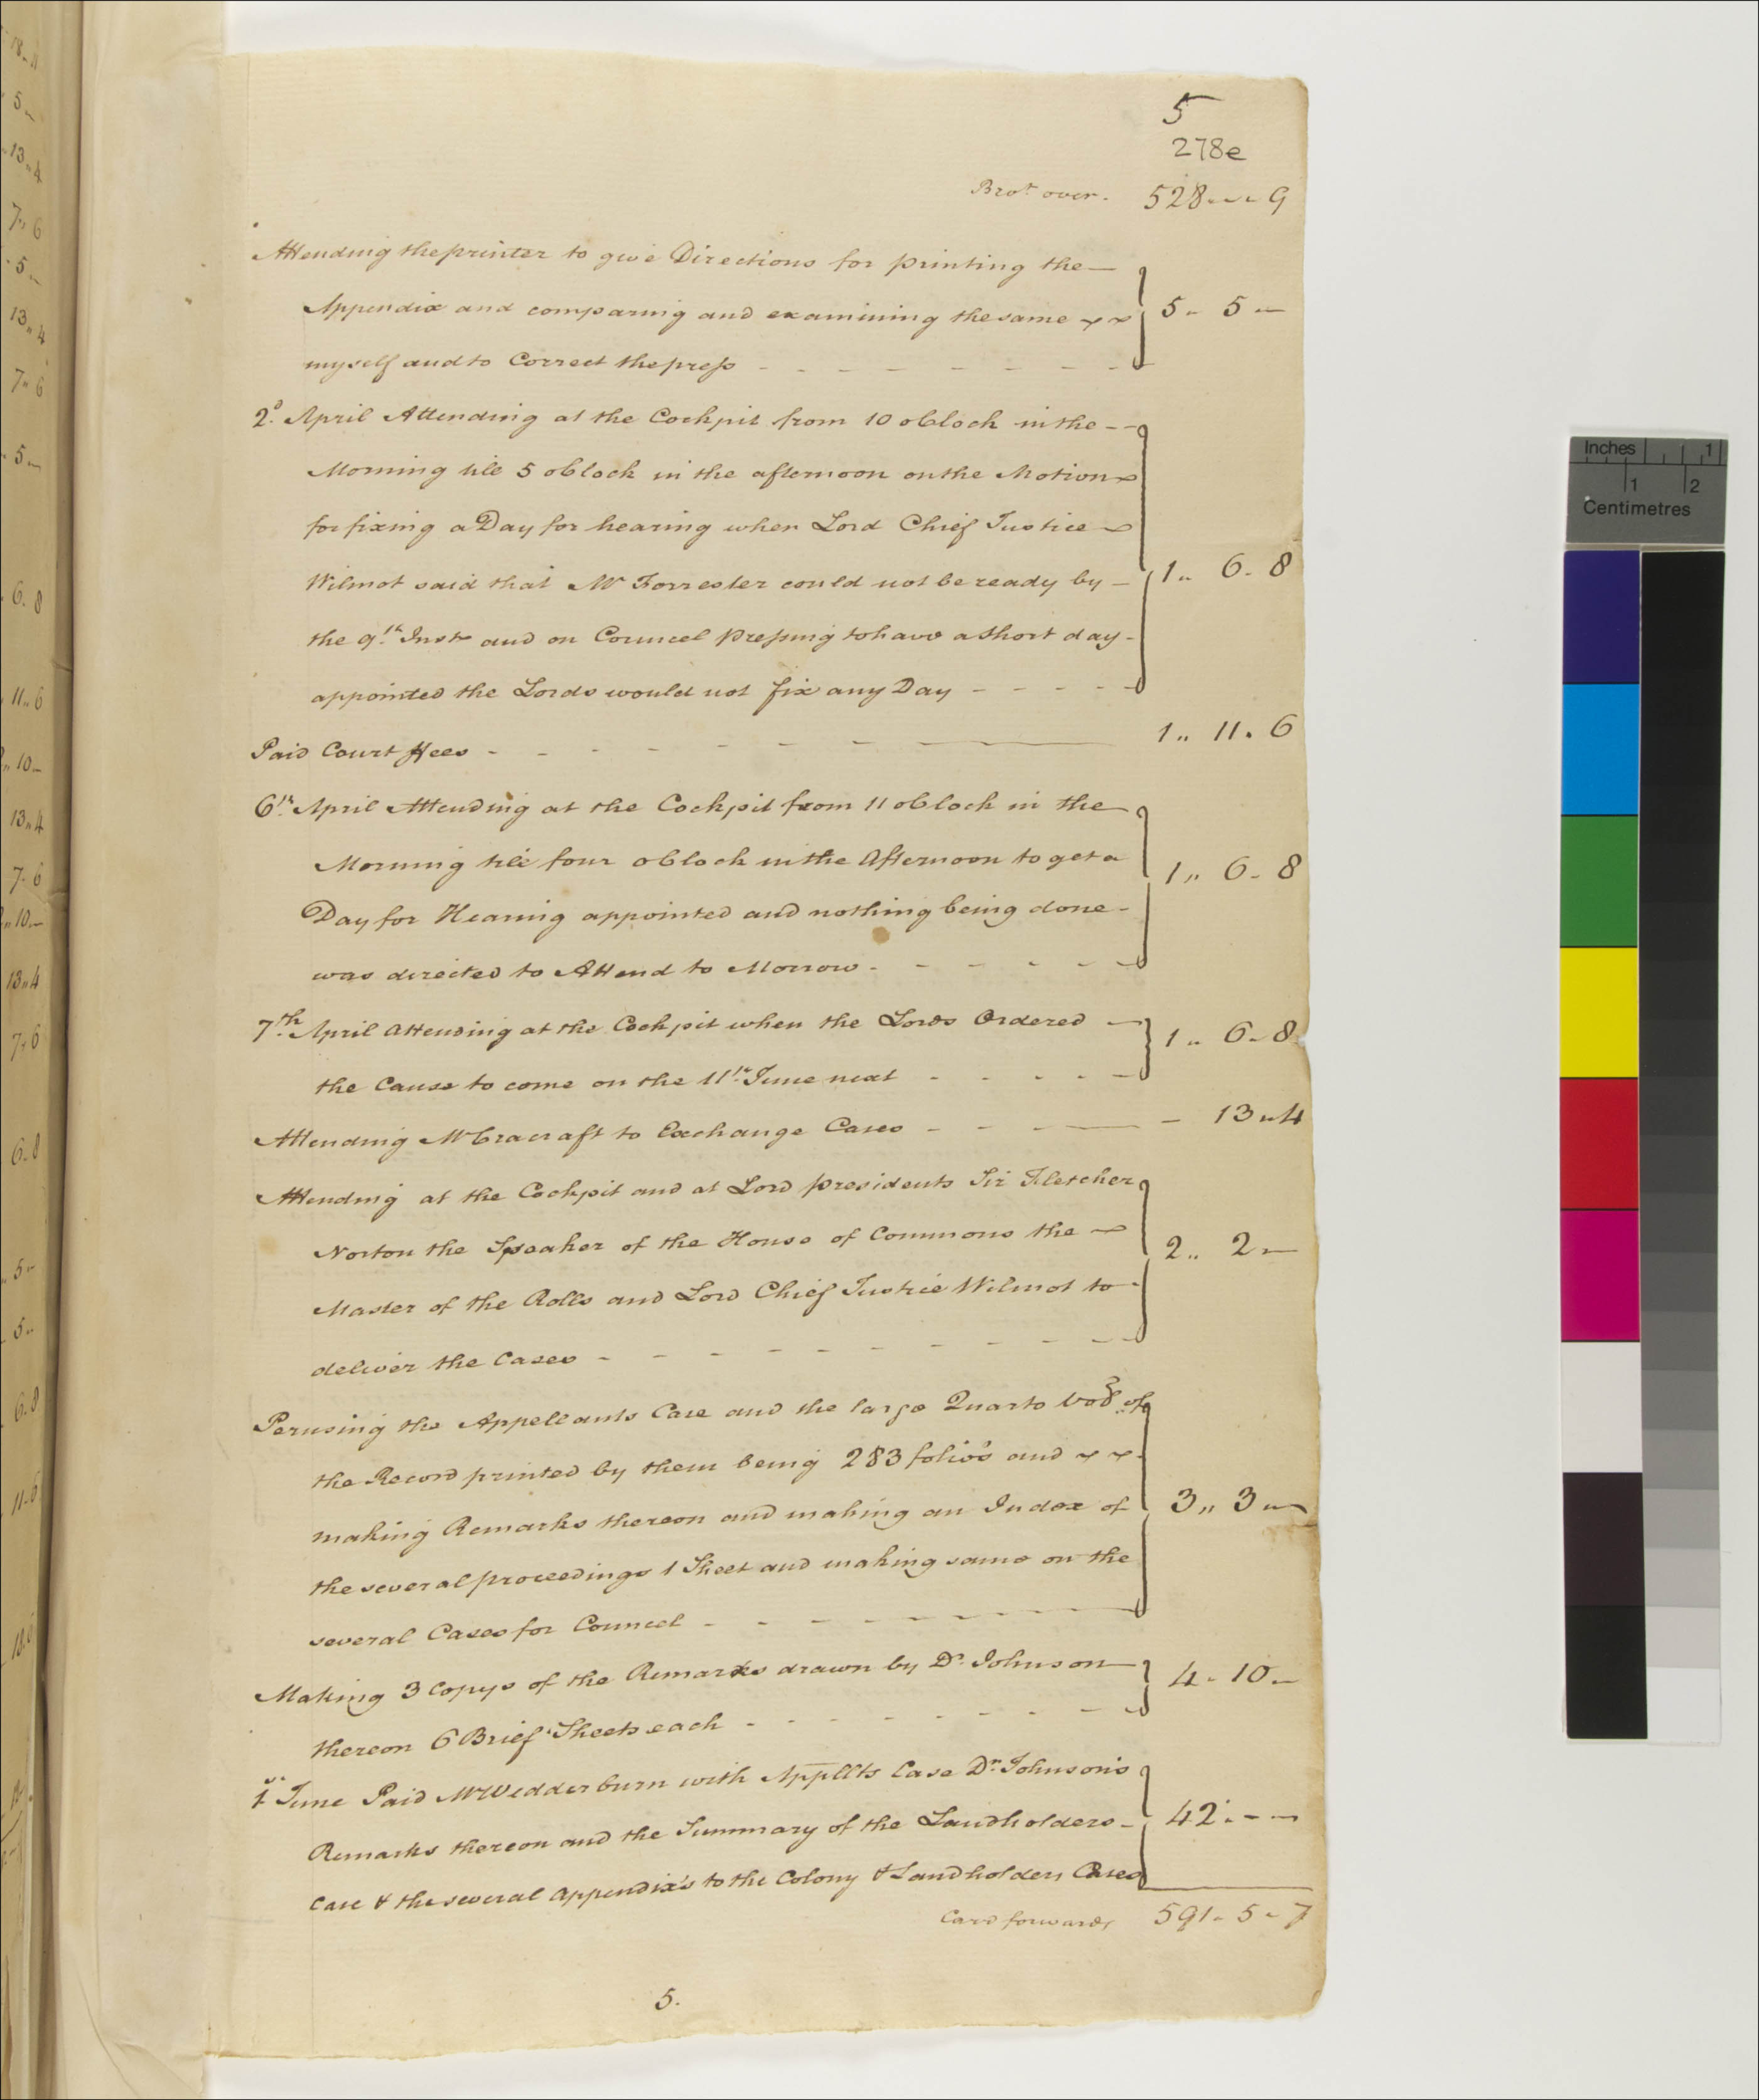 5
278e
Bro.t over. 528 - - 9
Attending the printer to give Directions for printing the
Appendix and comparing and examining the same 5 - 5 -
myself and to Correct the press
2.d April Attending at the Cockpit from 10 oClock in the
Morning till 5 oClock in the afternoon on the Motion
for fixing a Day for hearing when Lord Chief Justice
Wilmot said that Mr Forrester could not be ready by 1 " 6 - 8
the 9.th Inst and on Councel pressing to have a short day
appointed the Lords would not fix any Day
Paid Court ffees 1 " 11 . 6
6.th April Attending at the Cockpit from 11 oClock in the
Morning till four oClock in the Afternoon to get a 1 " 6 - 8
Day for Hearing appointed and nothing being done
was directed to Attend to Morrow
7.th April Attending at the Cockpit when the Lords Ordered 1 " 6 - 8
the Cause to come on the 11.th June next
Attending Mr Cracraft to Exchange Cases - 13 " 4
Attending at the Cockpit and at Lord presidents Sir Fletcher
Norton the Speaker of the House of Commons the 2 " 2 -
Master of the Rolls and Lord Chief Justice Wilmot to
deliver the Cases
Perusing the Appellants Case and the large Quarto Vol. of
the Record printed by them being 283 folio's and
making Remarks thereon and making an Index of 3 " 3 -
the several proceedings 1 Sheet and making same on the
several Cases for Councel
Making 3 Copys of the Remarks drawn by Dr. Johnson 4 - 10 -
thereon 6 Brief Sheets each
1st June Paid Mr Wedderburn with Appllts Case Dr. Johnson's
Remarks thereon and the Summary of the Landholders 42 . - -
Case & the several Appendix's to the Colony & Landholders Cases
Card forwards 591 - 5 - 7
5.
18 - 11
5 -
13 " 4
7 " 6
5 -
13 " 4
7 " 6
5 -
6 . 8
11 " 6
10 -
13 " 4
7 - 6
10 -
13 " 4
7 " 6
6 - 8
5 -
5 -
6 - 8
11 - 6